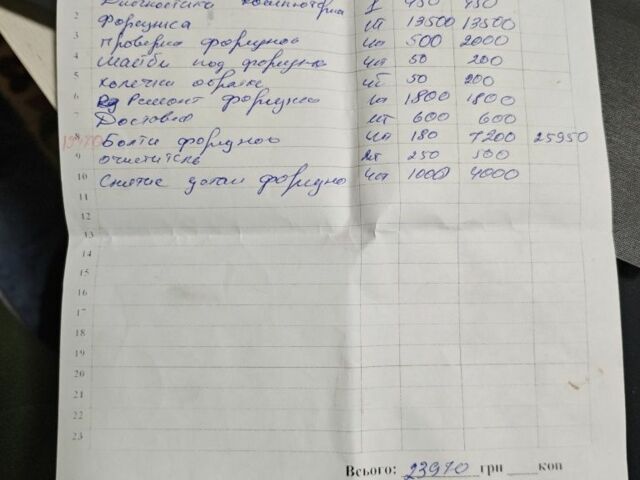 Диагностика компютерна 1 450 450
2 Форсунка 1шт 13500 13500
3 Проверка форсунок 4шт 500 2000
4 Шайби под форсунки 4шт 50 200
5 Колечки обратке 4шт 50 200
6 Ремонт форсунки 1шт 1800 1800
7 Доставка 1шт 600 600
8 Болти форсунок 4шт 180 7200 25950
9 очиститель 2шт 250 500
10 Снятие форсунок 4шт 1000 4000
11
12
13
14
15
16
17
18
19
20
21
22
23
Всього: 23970 грн коп